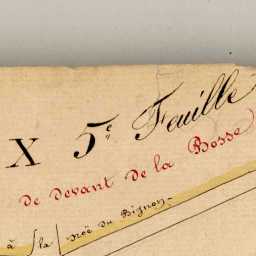 X 5e Feuille
De Devant De la Bosse
à la noë du Bignon